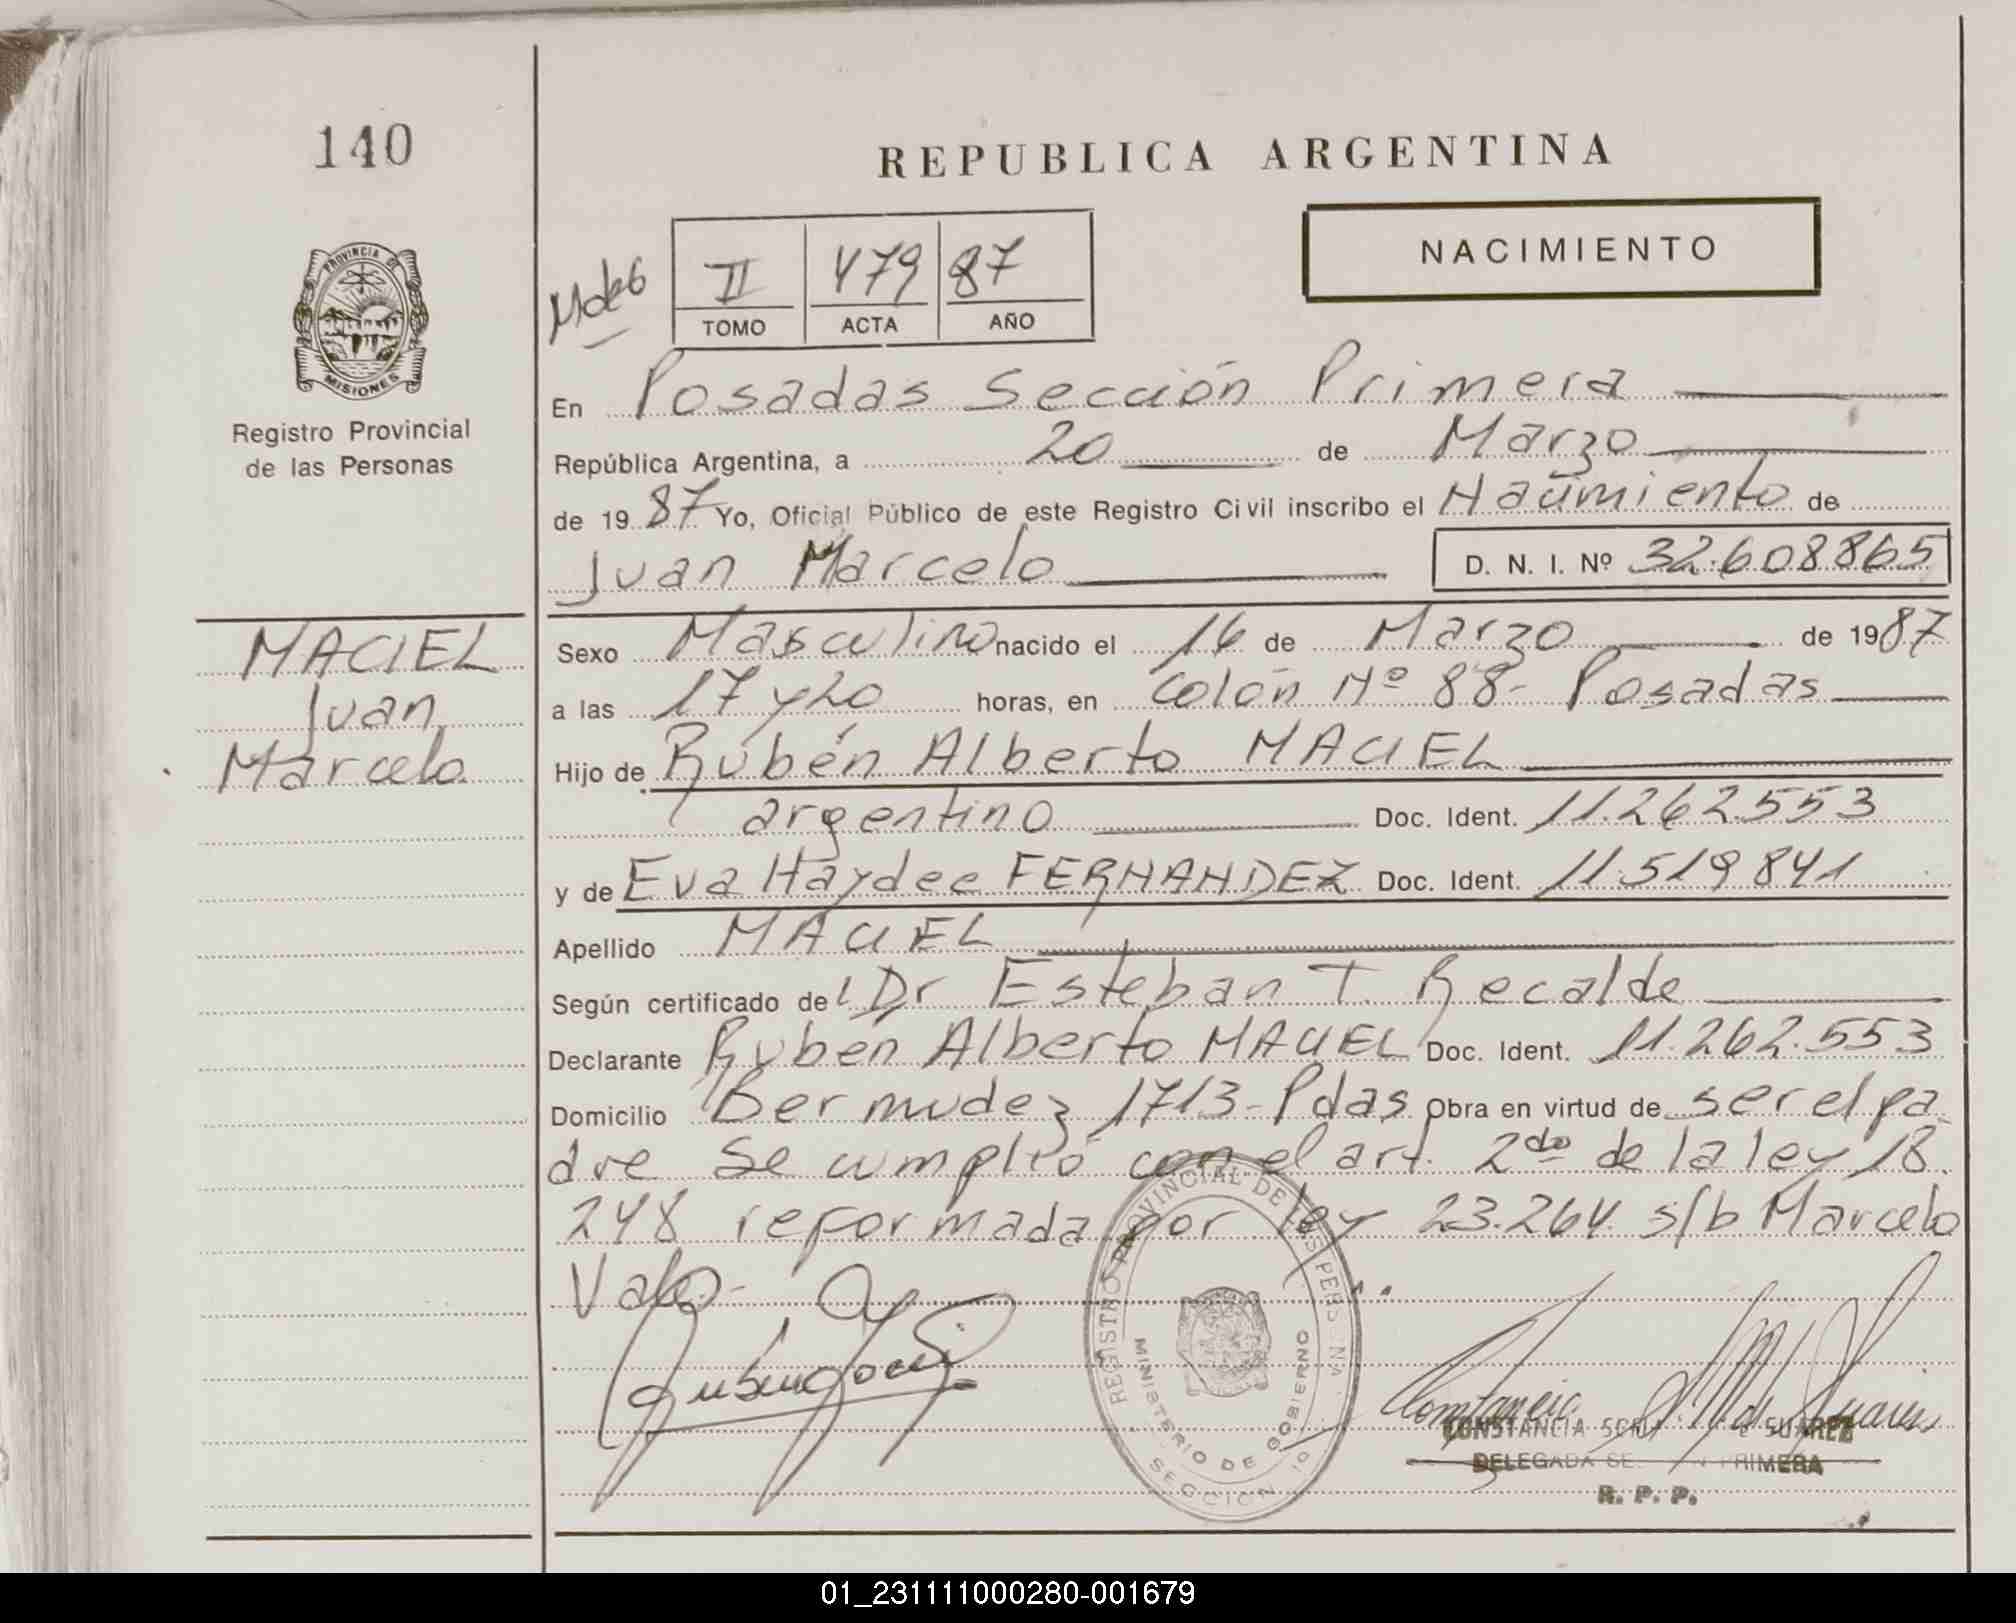 140
REPUBLICA ARGENTINA
NACIMIENTO
II 479 87
TOMO ACTA AÑO
PROVINCIA DE
MISIONES
Registro Provincial
de las Personas
En Posadas Sección Primera
República Argentina, a 20 de Marzo
de 1987 Yo, Oficial Público de este Registro Civil inscribo el Nacimiento de
Juan Marcelo D. N. I. Nº 32.608865
MACIEL
Juan
Marcelo
Sexo Masculino nacido el 16 de Marzo de 1987
a las 17 y 20 horas, en Colón Nº 88- Posadas
Hijo de Rubén Alberto MACIEL
argentino Doc. Ident. 11.262.553
y de Eva Haydee FERNANDEZ Doc. Ident. 11.519841
Apellido MACIEL
Según certificado del Dr Esteban T. Recalde
Declarante Rubén Alberto MACIEL Doc. Ident. 11.262.553
Domicilio Bermudez 1713-Pdas Obra en virtud de ser el pa
dre Se cumplió con el art. 2do de la ley 18.
248 reformada por ley 23.264. s/b Marcelo
Vale-
REGISTRO PROVINCIAL DE LAS PERSONAS
MINISTERIO DE GOBIERNO
SECCION 1º
CONSTANCIA SUAREZ
DELEGADA PRIMERA
R. P. P.
01_231111000280-001679